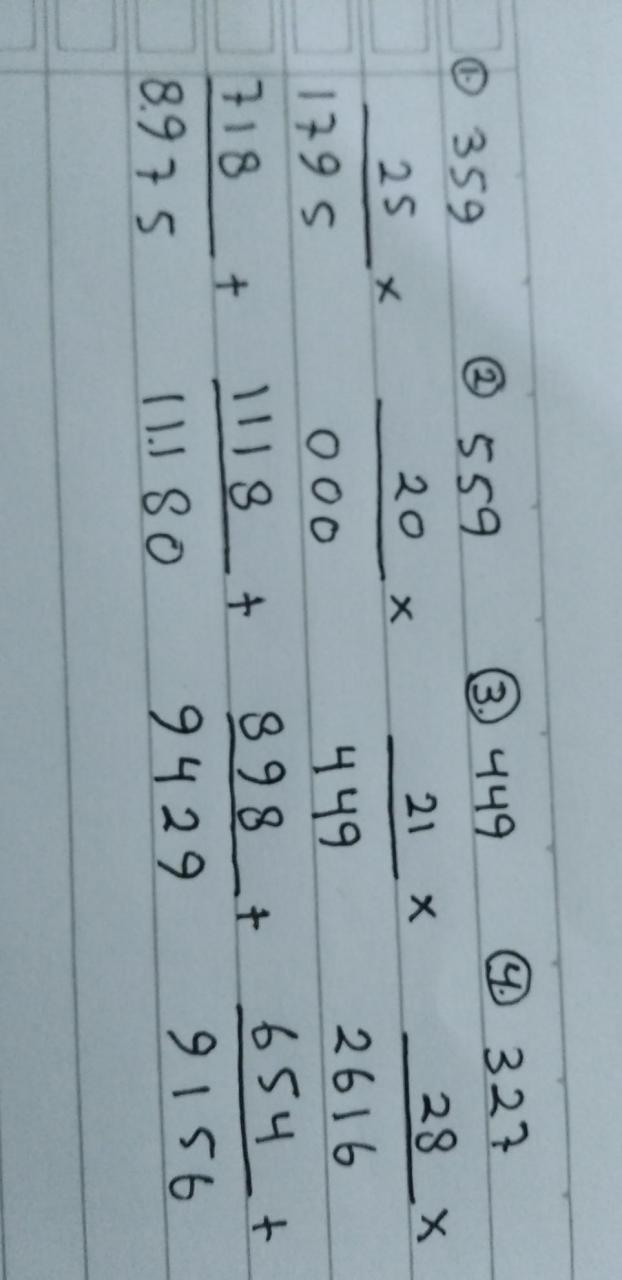 ① 359 ② 559 ③. 449 ④. 327
25 × 20 × 21 × 28 ×
1795 000 449 2616
718 + 1118 + 898 + 654 +
8.975 11.180 9429 9156